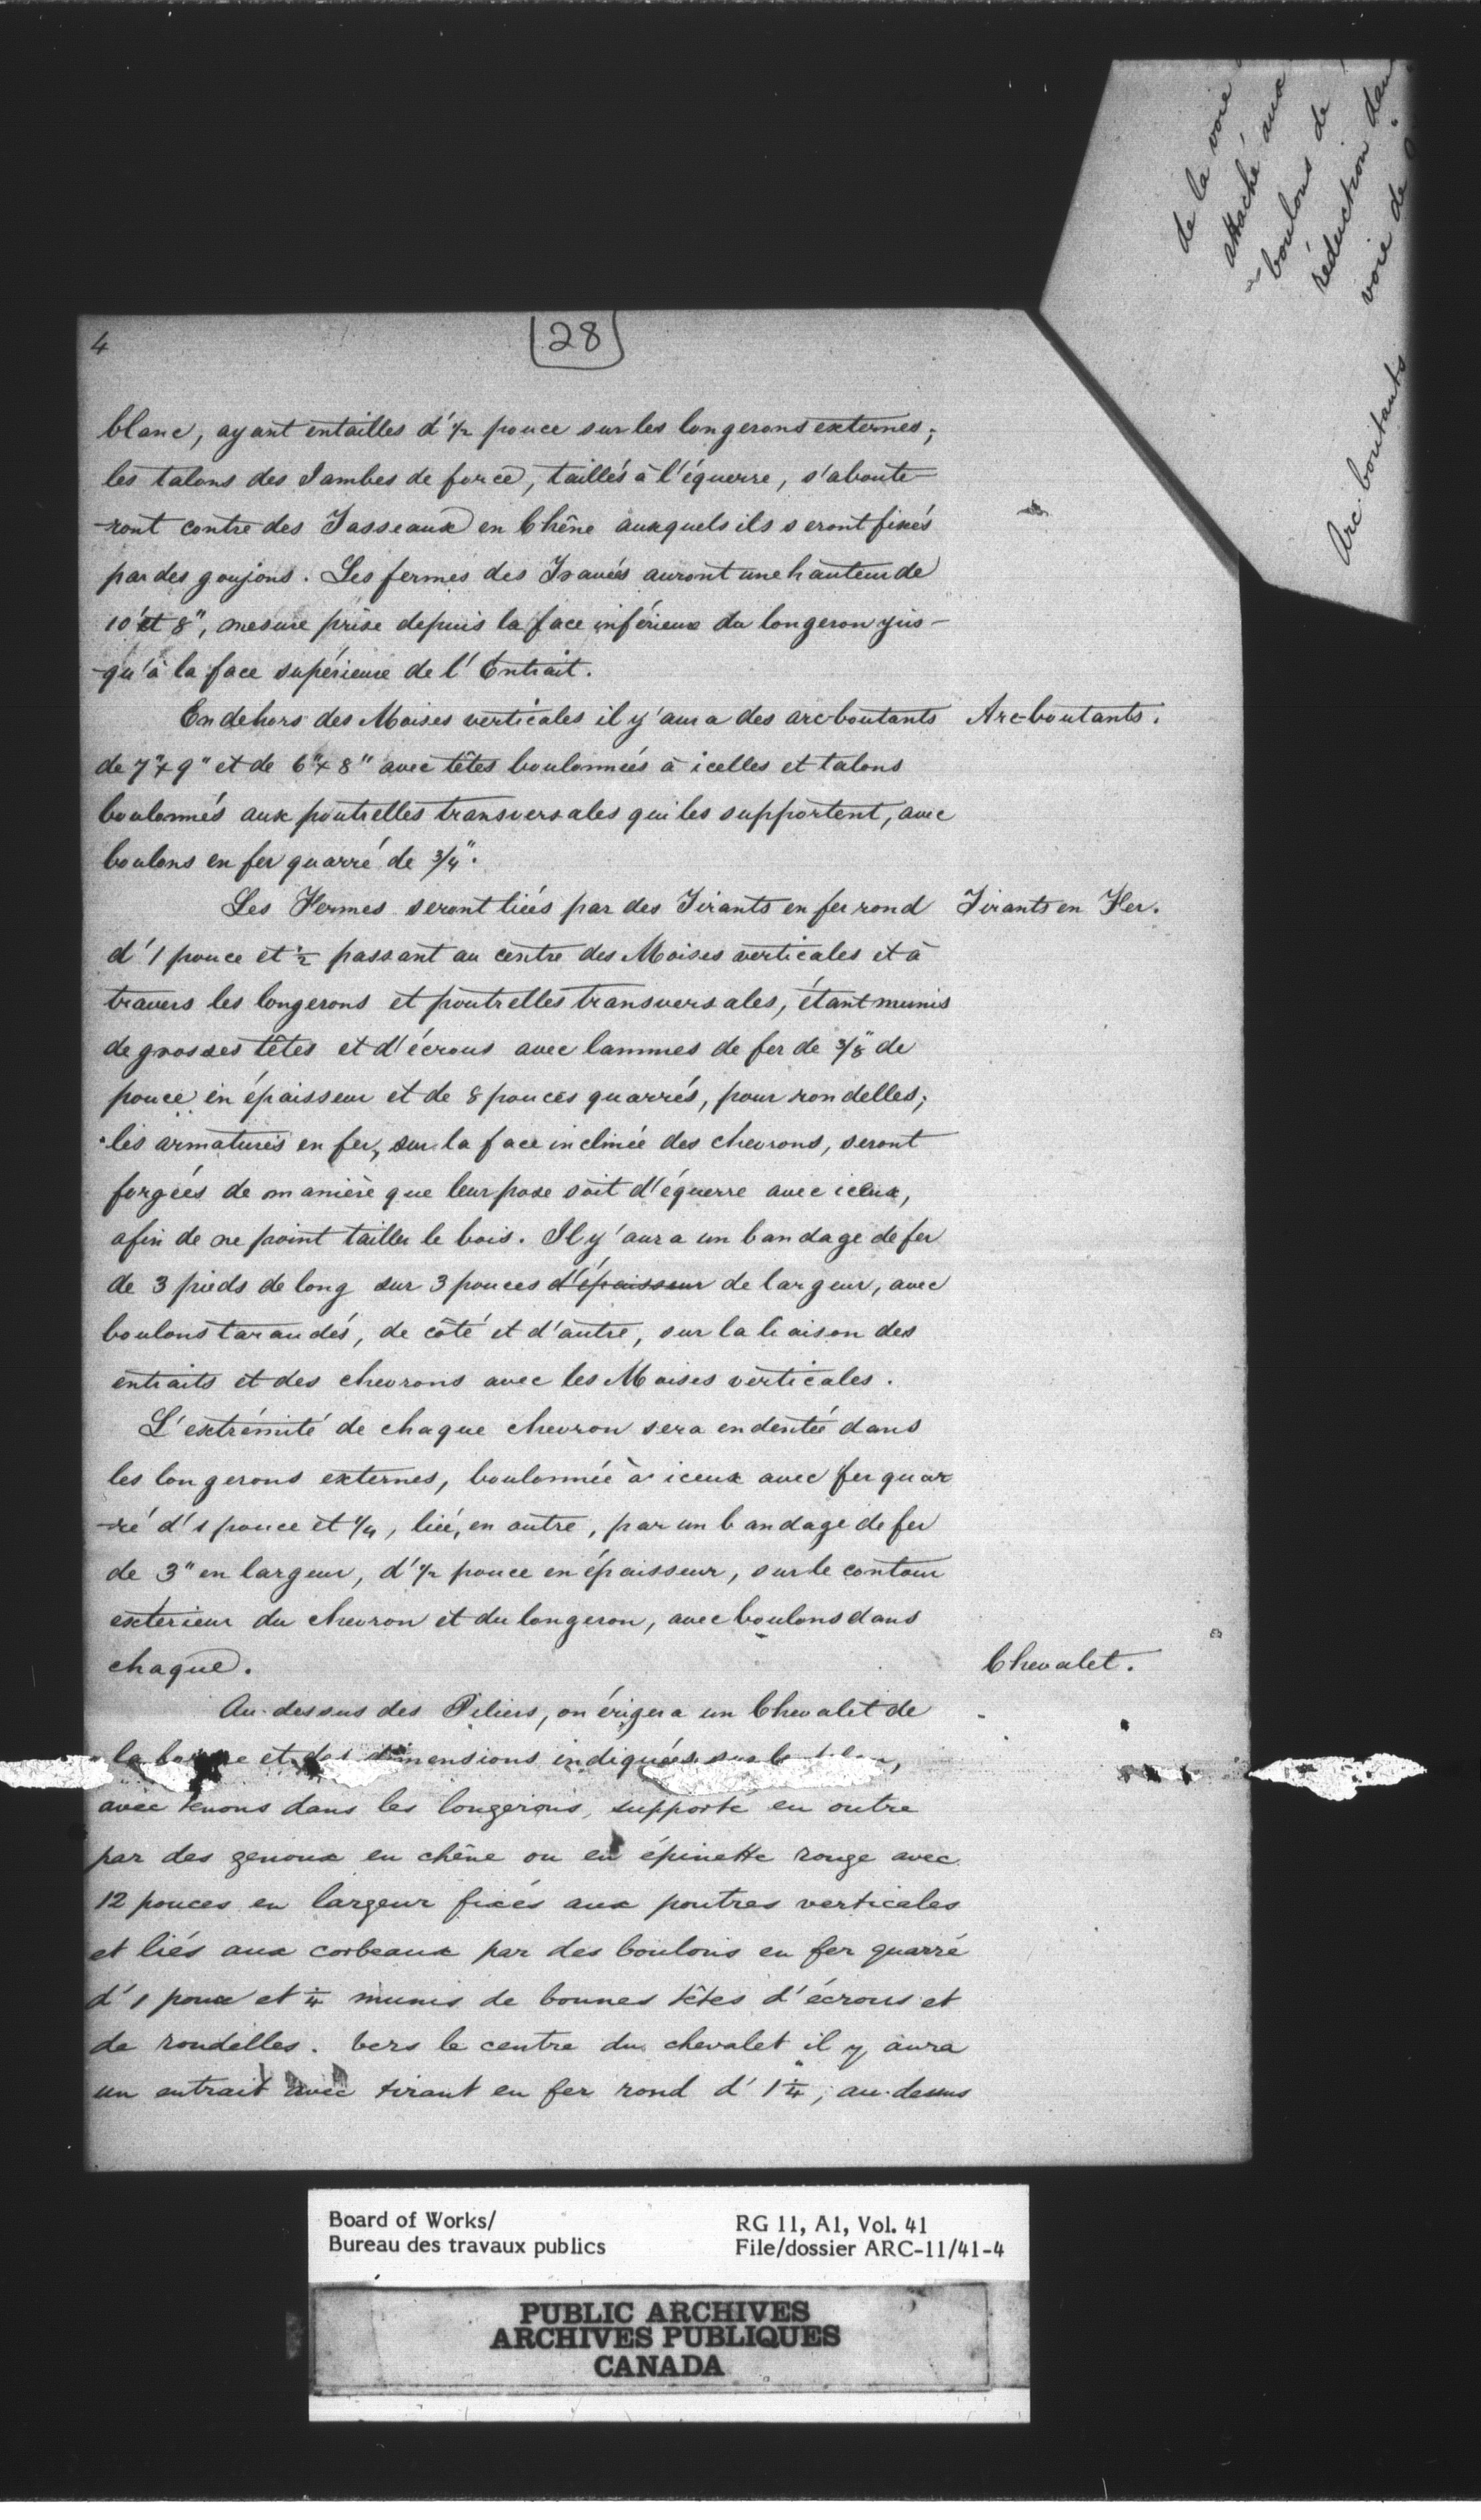 4
28
blanc, ayant entailles d'1/2 pouce sur les longerons externes;
les talons des Jambes de force, taillés à l'équerre, s'aboute-
-ront contre des Tasseaux en Chêne auxquels ils seront fixés
par des goujons. Les fermes des Travées auront une hauteur de
10' et 8", mesure prise depuis la face inférieur du longeron jus-
-qu'à la face supérieure de l'Entrait.
En dehors des Moises verticales il y'aura des arc-boutants
Arc-boutants.
de 7"x9" et de 6"x8" avec têtes boulonnées à icelles et talons
boulonnés aux poutrelles transversales qui les supportent, avec
boulons en fer quarré de 3/4".
Les Fermes seront liées par des Tirants en fer rond
Tirants en Fer.
d'1 pouce et 1/2 passant au centre des Moises verticales et à
travers les longerons et poutrelles transversales, étant munis
de grosses têtes et d'écrous avec lammes de fer de 3/8" de
pouce en épaisseur et de 8 pouces quarrés, pour rondelles;
les armatures en fer, sur la face inclinée des chevrons, seront
forgées de manière que leur pose soit d'équerre avec iceux,
afin de ne point tailler le bois. Il y'aura un bandage de fer
de 3 pieds de long sur 3 pouces d'épaisseur de largeur, avec
boulons taraudés, de côté et d'autre, sur la liaison des
entraits et des chevrons avec les Moises verticales.
L'extrémité de chaque chevron sera endentée dans
les longerons externes, boulonnée à iceux avec fer quar
-ré d'1 pouce et 1/4, liée, en outre, par un bandage de fer
de 3" en largeur, d'1/2 pouce en épaisseur, sur le contour
exterieur du chevron et du longeron, avec boulons dans
chaque.
Chevalet.
Au-dessus des Piliers, on érigera un Chevalet de
la et des dimensions indiquées sur le
avec tenons dans les longerons, supporté en outre
par des genoux en chêne ou en épinette rouge avec
12 pouces en largeur fixés aux poutres verticales
et liés aux corbeaux par des boulons en fer quarré
d'1 pouce et 1/4 munis de bonnes têtes d'écrous et
de rondelles. Vers le centre du chevalet il y aura
un entrait avec tirant en fer rond d'1 1/4"; au-dessus
de la voie
attaché aux
boulons de
réduction dans
voie de
Arc-boutants
Board of Works/
Bureau des travaux publics
RG 11, A1, Vol. 41
File/dossier ARC-11/41-4
PUBLIC ARCHIVES
ARCHIVES PUBLIQUES
CANADA